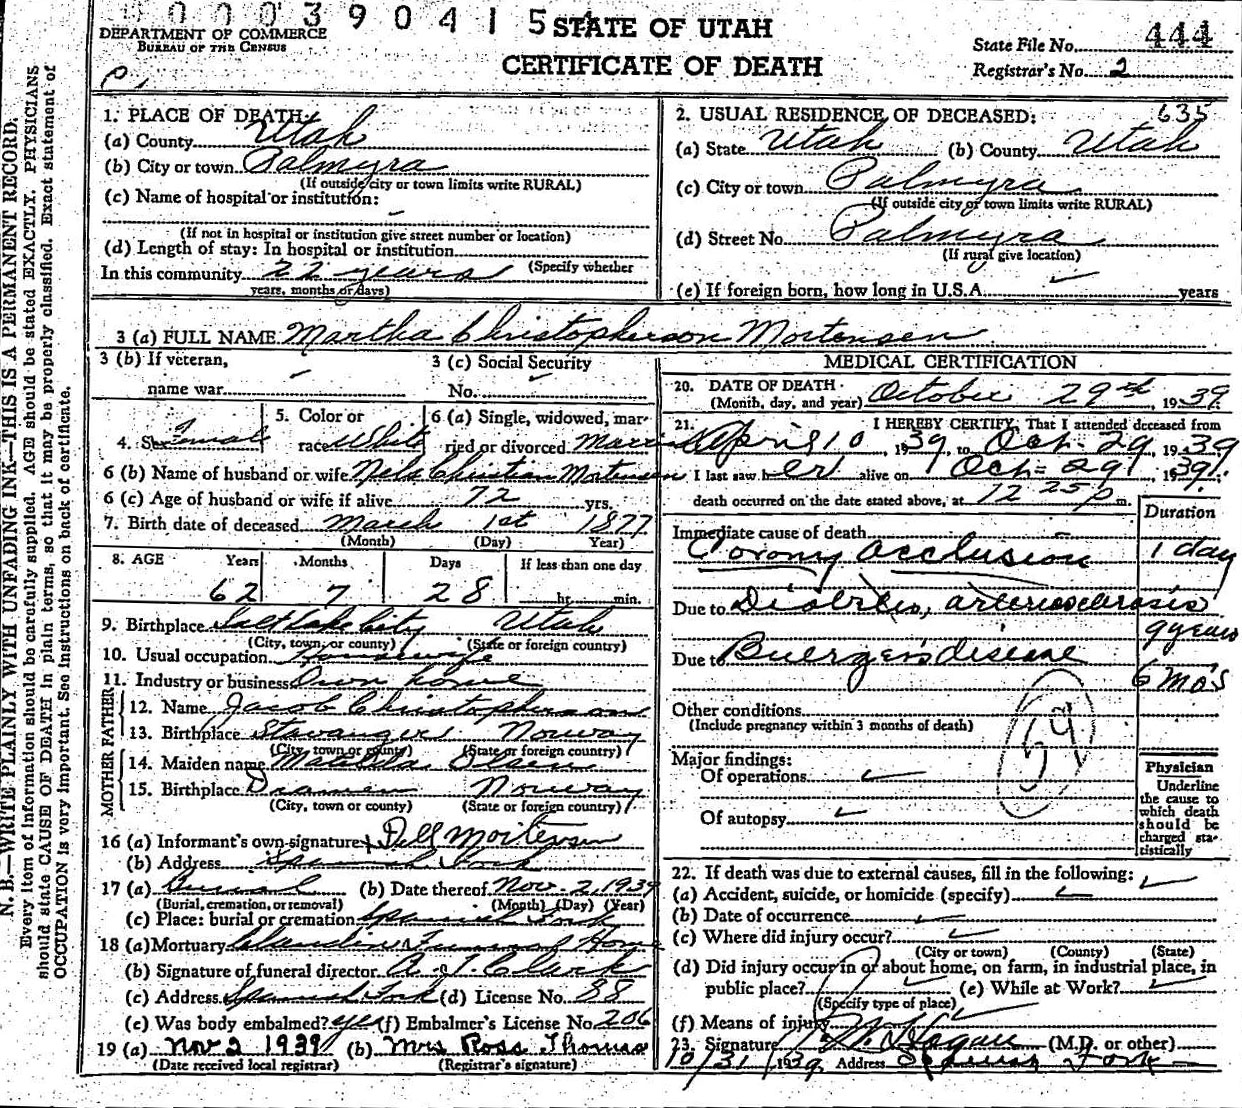 0 0 0 3 9 0 4 1 5
STATE OF UTAH
DEPARTMENT OF COMMERCE
BUREAU OF THE CENSUS
CERTIFICATE OF DEATH
State File No. 444
Registrar's No. 2
N. B.—WRITE PLAINLY WITH UNFADING INK—THIS IS A PERMANENT RECORD.
Every item of information should be carefully supplied. AGE should be stated EXACTLY. PHYSICIANS
should state CAUSE OF DEATH in plain terms, so that it may be properly classified. Exact statement of
OCCUPATION is very important. See instructions on back of certificate.
1. PLACE OF DEATH:
(a) County Utah
(b) City or town Palmyra
(If outside city or town limits write RURAL)
(c) Name of hospital or institution:
(If not in hospital or institution give street number or location)
(d) Length of stay: In hospital or institution
In this community 22 years (Specify whether
years, months or days)
2. USUAL RESIDENCE OF DECEASED: 635
(a) State Utah (b) County Utah
(c) City or town Palmyra
(If outside city or town limits write RURAL)
(d) Street No. Palmyra
(If rural give location)
(e) If foreign born, how long in U.S.A. years
3 (a) FULL NAME Martha Christopherson Mortensen
3 (b) If veteran, 3 (c) Social Security
name war No.
4. Sex Female 5. Color or race White 6 (a) Single, widowed, married or divorced Married
6 (b) Name of husband or wife Nels Christian Mortensen
6 (c) Age of husband or wife if alive 72 yrs.
7. Birth date of deceased March 1st 1877
(Month) (Day) Year)
8. AGE Years Months Days If less than one day
62 7 28 hr. min.
9. Birthplace Salt Lake City Utah
(City, town, or county) (State or foreign country)
10. Usual occupation Housewife
11. Industry or business Own home
FATHER
12. Name Jacob Christopherson
13. Birthplace Stavanger Norway
(City, town or county) (State or foreign country)
MOTHER
14. Maiden name Matilda Olsen
15. Birthplace Dramen Norway
(City, town or county) (State or foreign country)
16 (a) Informant's own signature Dell Mortensen
(b) Address Spanish Fork
17 (a) Burial (b) Date thereof Nov. 2, 1939
(Burial, cremation, or removal) (Month) (Day) (Year)
(c) Place: burial or cremation Spanish Fork
18 (a) Mortuary Funeral Home
(b) Signature of funeral director Clark
(c) Address Spanish Fork (d) License No. 88
(e) Was body embalmed? yes (f) Embalmer's License No. 206
19 (a) Nov 2 1939 (b) Mrs Ross Thomas
(Date received local registrar) (Registrar's signature)
MEDICAL CERTIFICATION
20. DATE OF DEATH October 29th, 1939
(Month, day, and year)
21. I HEREBY CERTIFY, That I attended deceased from
April 10, 1939, to Oct. 29, 1939
I last saw her alive on Oct. 29, 1939.
death occurred on the date stated above, at 12 25 p m.
Duration
Immediate cause of death
Corony occlusion 1 day
Due to Diabetes, arteriosclerosis
9 years
Due to Buergers disease
6 mos
Other conditions
(Include pregnancy within 3 months of death)
54
Major findings:
Of operations
Of autopsy
Physician
Underline
the cause to
which death
should be
charged sta-
tistically
22. If death was due to external causes, fill in the following:
(a) Accident, suicide, or homicide (specify)
(b) Date of occurrence
(c) Where did injury occur?
(City or town) (County) (State)
(d) Did injury occur in or about home, on farm, in industrial place, in
public place? (e) While at Work?
(Specify type of place)
(f) Means of injury
23. Signature Hagan (M.D. or other)
10/31/1939 Address Spanish Fork